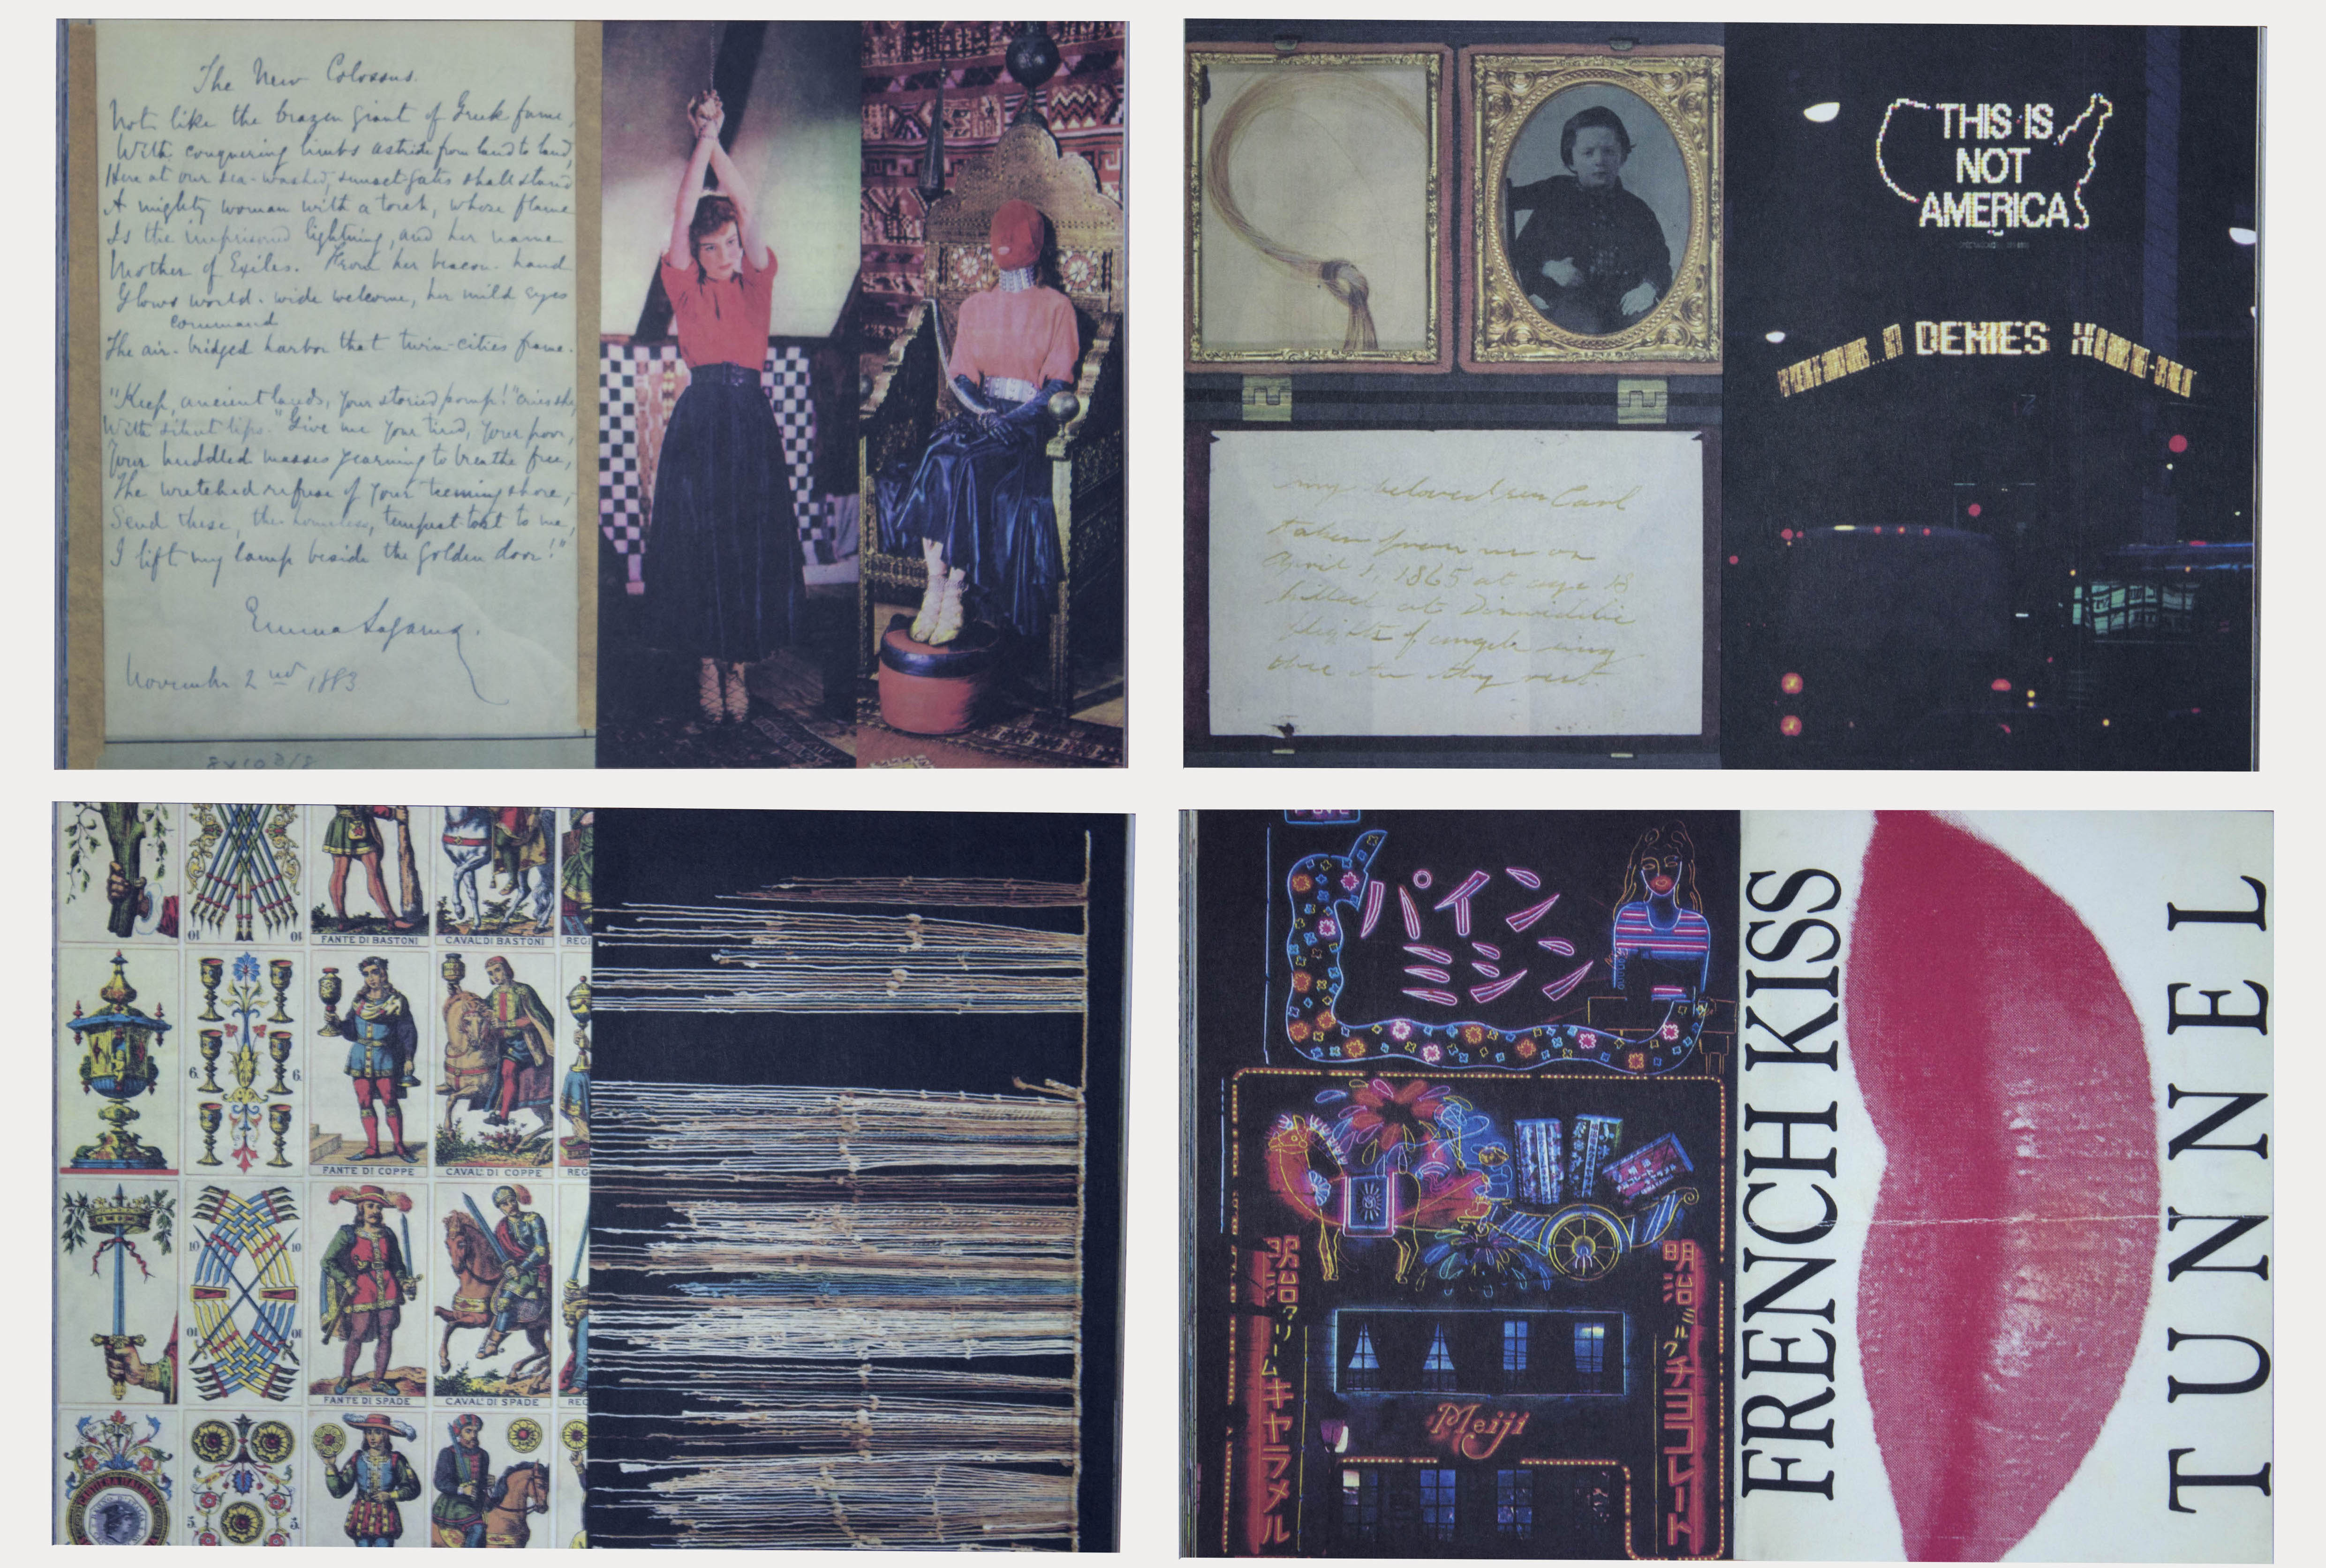 The New Colossus.
Not like the brazen giant of Greek fame,
With conquering limbs astride from land to land;
Here at our sea-washed, sunset-gates shall stand
A mighty woman with a torch, whose flame
Is the imprisoned lightning, and her name
Mother of Exiles. From her beacon-hand
Glows world-wide welcome, her mild eyes
command
The air-bridged harbor that twin-cities frame.
"Keep, ancient lands, your storied pomp!" cries she,
With silent lips. "Give me your tired, your poor,
Your huddled masses yearning to breathe free,
The wretched refuse of your teeming shore,
Send these, the homeless, tempest-tost to me,
I lift my lamp beside the golden door!"
Emma Lazarus.
November 2nd 1883
my beloved son Carl
taken from me on
April 1, 1865 at age 18
killed at Dinwiddie
flights of angels wing
thee to thy rest.
THIS IS
NOT
AMERICA
DENIES
10 10
FANTE DI BASTONI
CAVAL. DI BASTONI
REGI
6. 6.
FANTE DI COPPE
CAVAL. DI COPPE
REG
10 10
01 01
FANTE DI SPADE
CAVAL. DI SPADE
REG
5. 5.
パイン
ミシン
明治
クリームキャラメル
明治
ミルクチョコレート
Meiji
FRENCH KISS
TUNNEL